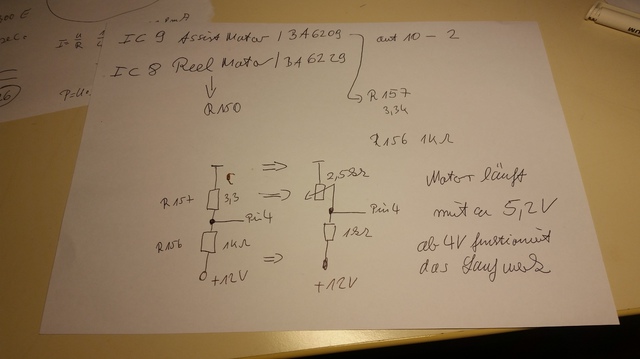 IC 9 Assist Motor / BA6209
out 10 - 2
IC 8 Reel Motor / BA6229
Q150
R157
3,3k
R156 1KΩ
R157 3,3
Pin4
R156 1KΩ
+12V
2,5KΩ
Pin4
1KΩ
+12V
Motor läuft
mit ca 5,2V
ab 4V funktioniert
das Laufwerk
I = U/R